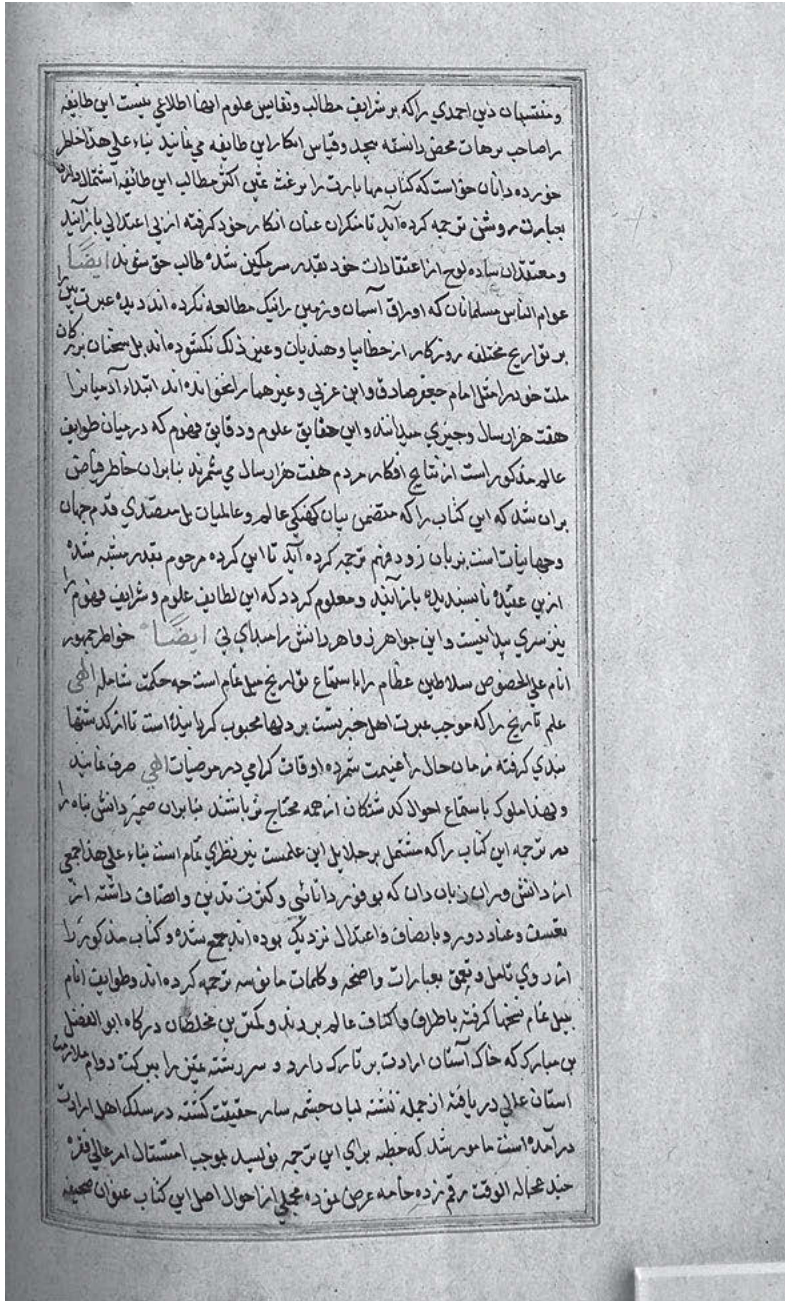 و منتسبان دین احمدی را که بر شرایف مطالب و نفایس علوم اینها اطلاعی نیست این طایفه
را صاحب ترهات محض دانسته بیحد و قیاس انکار این طایفه می نمایند بناء علی هذا خاطر
خورده دانان خواست که کتاب مهابارت را که غث ثمین اکثر مطالب این طائفه اشتمال دارد
بعبارت روشن ترجمه کرده آید تا منکران عنان انکار خود گرفته از بی اعتدالی باز آیند
و معتقدان ساده لوح از اعتقادات خود بقدر سرمگین شده طالب حق شوند ایضًا
عوام الناس مسلمانان که اوراق آسمان و زمین را نیک مطالعه نکرده اند دیده عبرت بین را
بر تواریخ مختلفه روزگار از خطاییا و هندیان و غیر ذلک نکشوده اند بل سخنان بزرکان
ملت خود را مثل امام جعفر صادق و ابن عربی و غیرهما را نخوانده اند ابتداء آدمیانرا
هفت هزار سال و چیزی میدانند و این حقایق علوم و دقایق فهوم که در میان طوایف
عالم مذکور است از نتایج افکار مردم هفت هزار سال می شمرند بنابران خاطر فیاض
بران شد که این کتاب را که متضمن بیان کهنکی عالم و عالمیان بل مصدی قدم جهان
و جهانیانست بزبان زود فهم ترجمه کرده آید تا این کرده مرحوم بقدر متنبه شده
ازین عقیده ناپسندیده بازآیند و معلوم کردد که این لطایف علوم و شرایف فهوم را
نیز سری پیدا نیست و این جواهر زواهر دانش را مبدای نی ایضًا خواطر جمهور
انام علی الخصوص سلاطین عظام را باستماع تواریخ میل تمام است چه حکمت شامله الهی
علم تاریخ را که موجب عبرت اهل خبرتست بر دلها محبوب کردانیده است تا از کذشتها
پندی کرفته زمان حال را غنیمت شمرده اوقات کرامی در مرضیات الهی صرف نمایند
و لهذا ملوک باستماع احوال کذشتکان از همه محتاج تر باشند بنابران ضمیر دانش پناه را
در ترجمه این کتاب را که مشتمل بر جلایل این علمست نیز نظری تمام است بناء علی هذا جمعی
از دانش وران زبان دان که بوفور دانائی و کثرت تدین و اتصاف داشته از
تعسف و عناد دور و بانصاف و اعتدال نزدیک بوده اند جمع شده و کتاب مذکور را
از روی تامل و تعمق بعبارات واضحه و کلمات مانوسه ترجمه کرده اند و طوایف انام
بمیل تمام نسخها کرفته باطراف و اکناف عالم بردند و کمترین مخلصان درکاه ابو الفضل
بن مبارک که خاک آستان ارادت بر تارک دارد و سررشته عقیدت را ببرکت دوام ملازمت
استان عالی دریافته از جمله تشنه لبان چشمه سار حقیقت کشته در سلک اهل ارادت
درآمده است مامور شد که خطبه برای این ترجمه نویسد بموجب امتثال امر عالی فقره
چند عجالة الوقت رقم زده خامه عرض نموده مجملی از احوال اصل این کتاب عنوان صحیفه